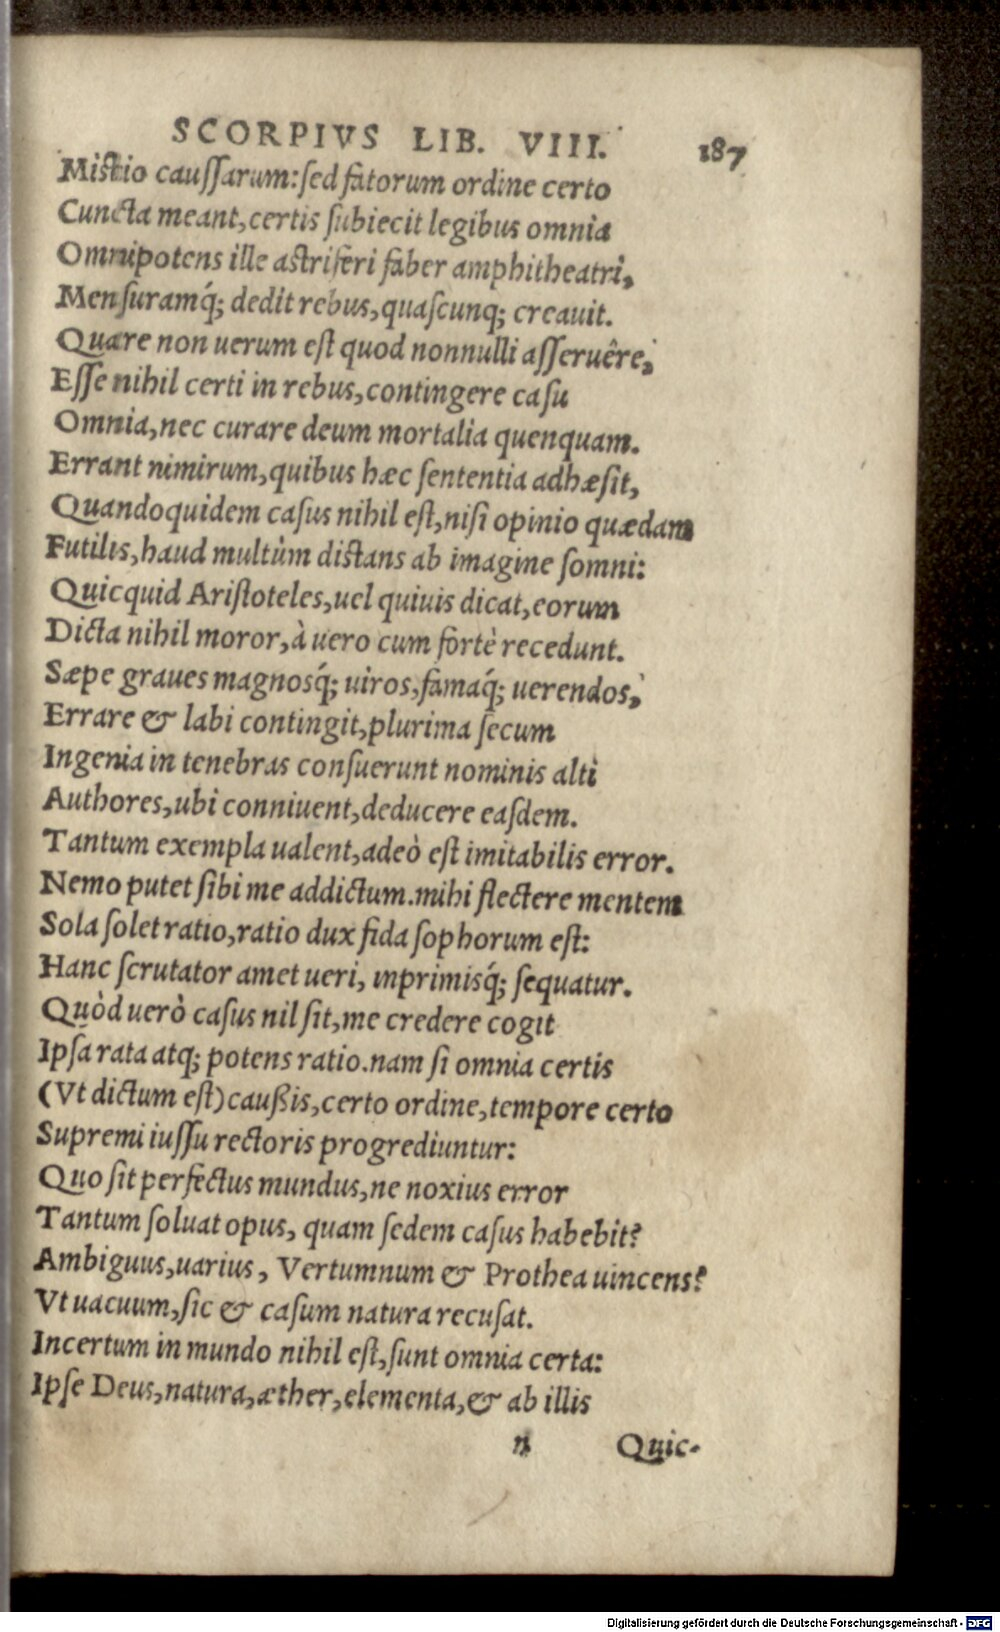 SCORPIVS LIB. VIII. 187
Mistio caussarum: sed fatorum ordine certo
Cuncta meant, certis subiecit legibus omnia
Omnipotens ille astriferi faber amphitheatri,
Mensuramq́; dedit rebus, quascunq; creauit.
Quare non uerum est quod nonnulli asseruêre,
Esse nihil certi in rebus, contingere casu
Omnia, nec curare deum mortalia quenquam.
Errant nimirum, quibus hæc sententia adhæsit,
Quandoquidem casus nihil est, nisi opinio quædam
Futilis, haud multùm distans ab imagine somni:
Quicquid Aristoteles, uel quiuis dicat, eorum
Dicta nihil moror, à uero cum fortè recedunt.
Sæpe graues magnosq́; uiros, famaq́; uerendos,
Errare & labi contingit, plurima secum
Ingenia in tenebras consuerunt nominis alti
Authores, ubi conniuent, deducere easdem.
Tantum exempla ualent, adeò est imitabilis error.
Nemo putet sibi me addictum. mihi flectere mentem
Sola solet ratio, ratio dux fida sophorum est:
Hanc scrutator amet ueri, inprimisq́; sequatur.
Quòd uerò casus nil sit, me credere cogit
Ipsa rata atq; potens ratio. nam si omnia certis
(Vt dictum est) caußis, certo ordine, tempore certo
Supremi iussu rectoris progrediuntur:
Quo sit perfectus mundus, ne noxius error
Tantum soluat opus, quam sedem casus habebit?
Ambiguus, uarius, Vertumnum & Prothea uincens?
Vt uacuum, sic & casum natura recusat.
Incertum in mundo nihil est, sunt omnia certa:
Ipse Deus, natura, æther, elementa, & ab illis
n Quic-
Digitalisierung gefördert durch die Deutsche Forschungsgemeinschaft - DFG